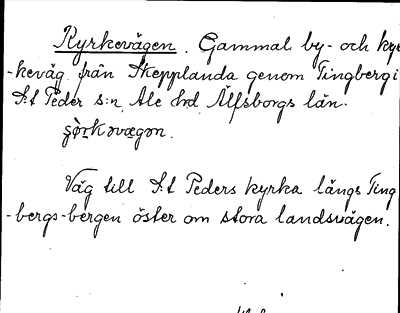 Kyrkevägen. Gammal by- och kyr
-keväg från Skepplanda genom Tingberg i
S:t Peder s:n, Ale hd Älfsborgs län.
Väg till S:t Peders kyrka längs Ting
-bergs-bergen öster om stora landsvägen.